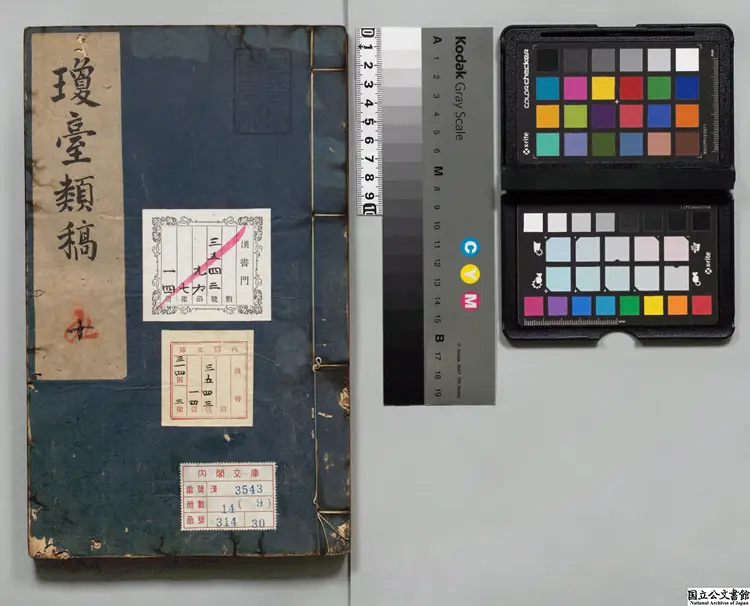 瓊臺類稿
漢書門
三五四三
九六
七
一四
類
號
函
架
冊
內閣文庫
漢書
三五四三
一四
三一四
三
內閣文庫
番號 漢 3543
冊數 14 ( 9 )
函號 314 30
Kodak Gray Scale
A 1 2 3 4 5 6 M 8 9 10 11 12 13 14 15 B 17 18 19
C
Y
M
1 2 3 4 5 6 7 8 9 10
colorchecker
x·rite
x·rite
国立公文書館
National Archives of Japan